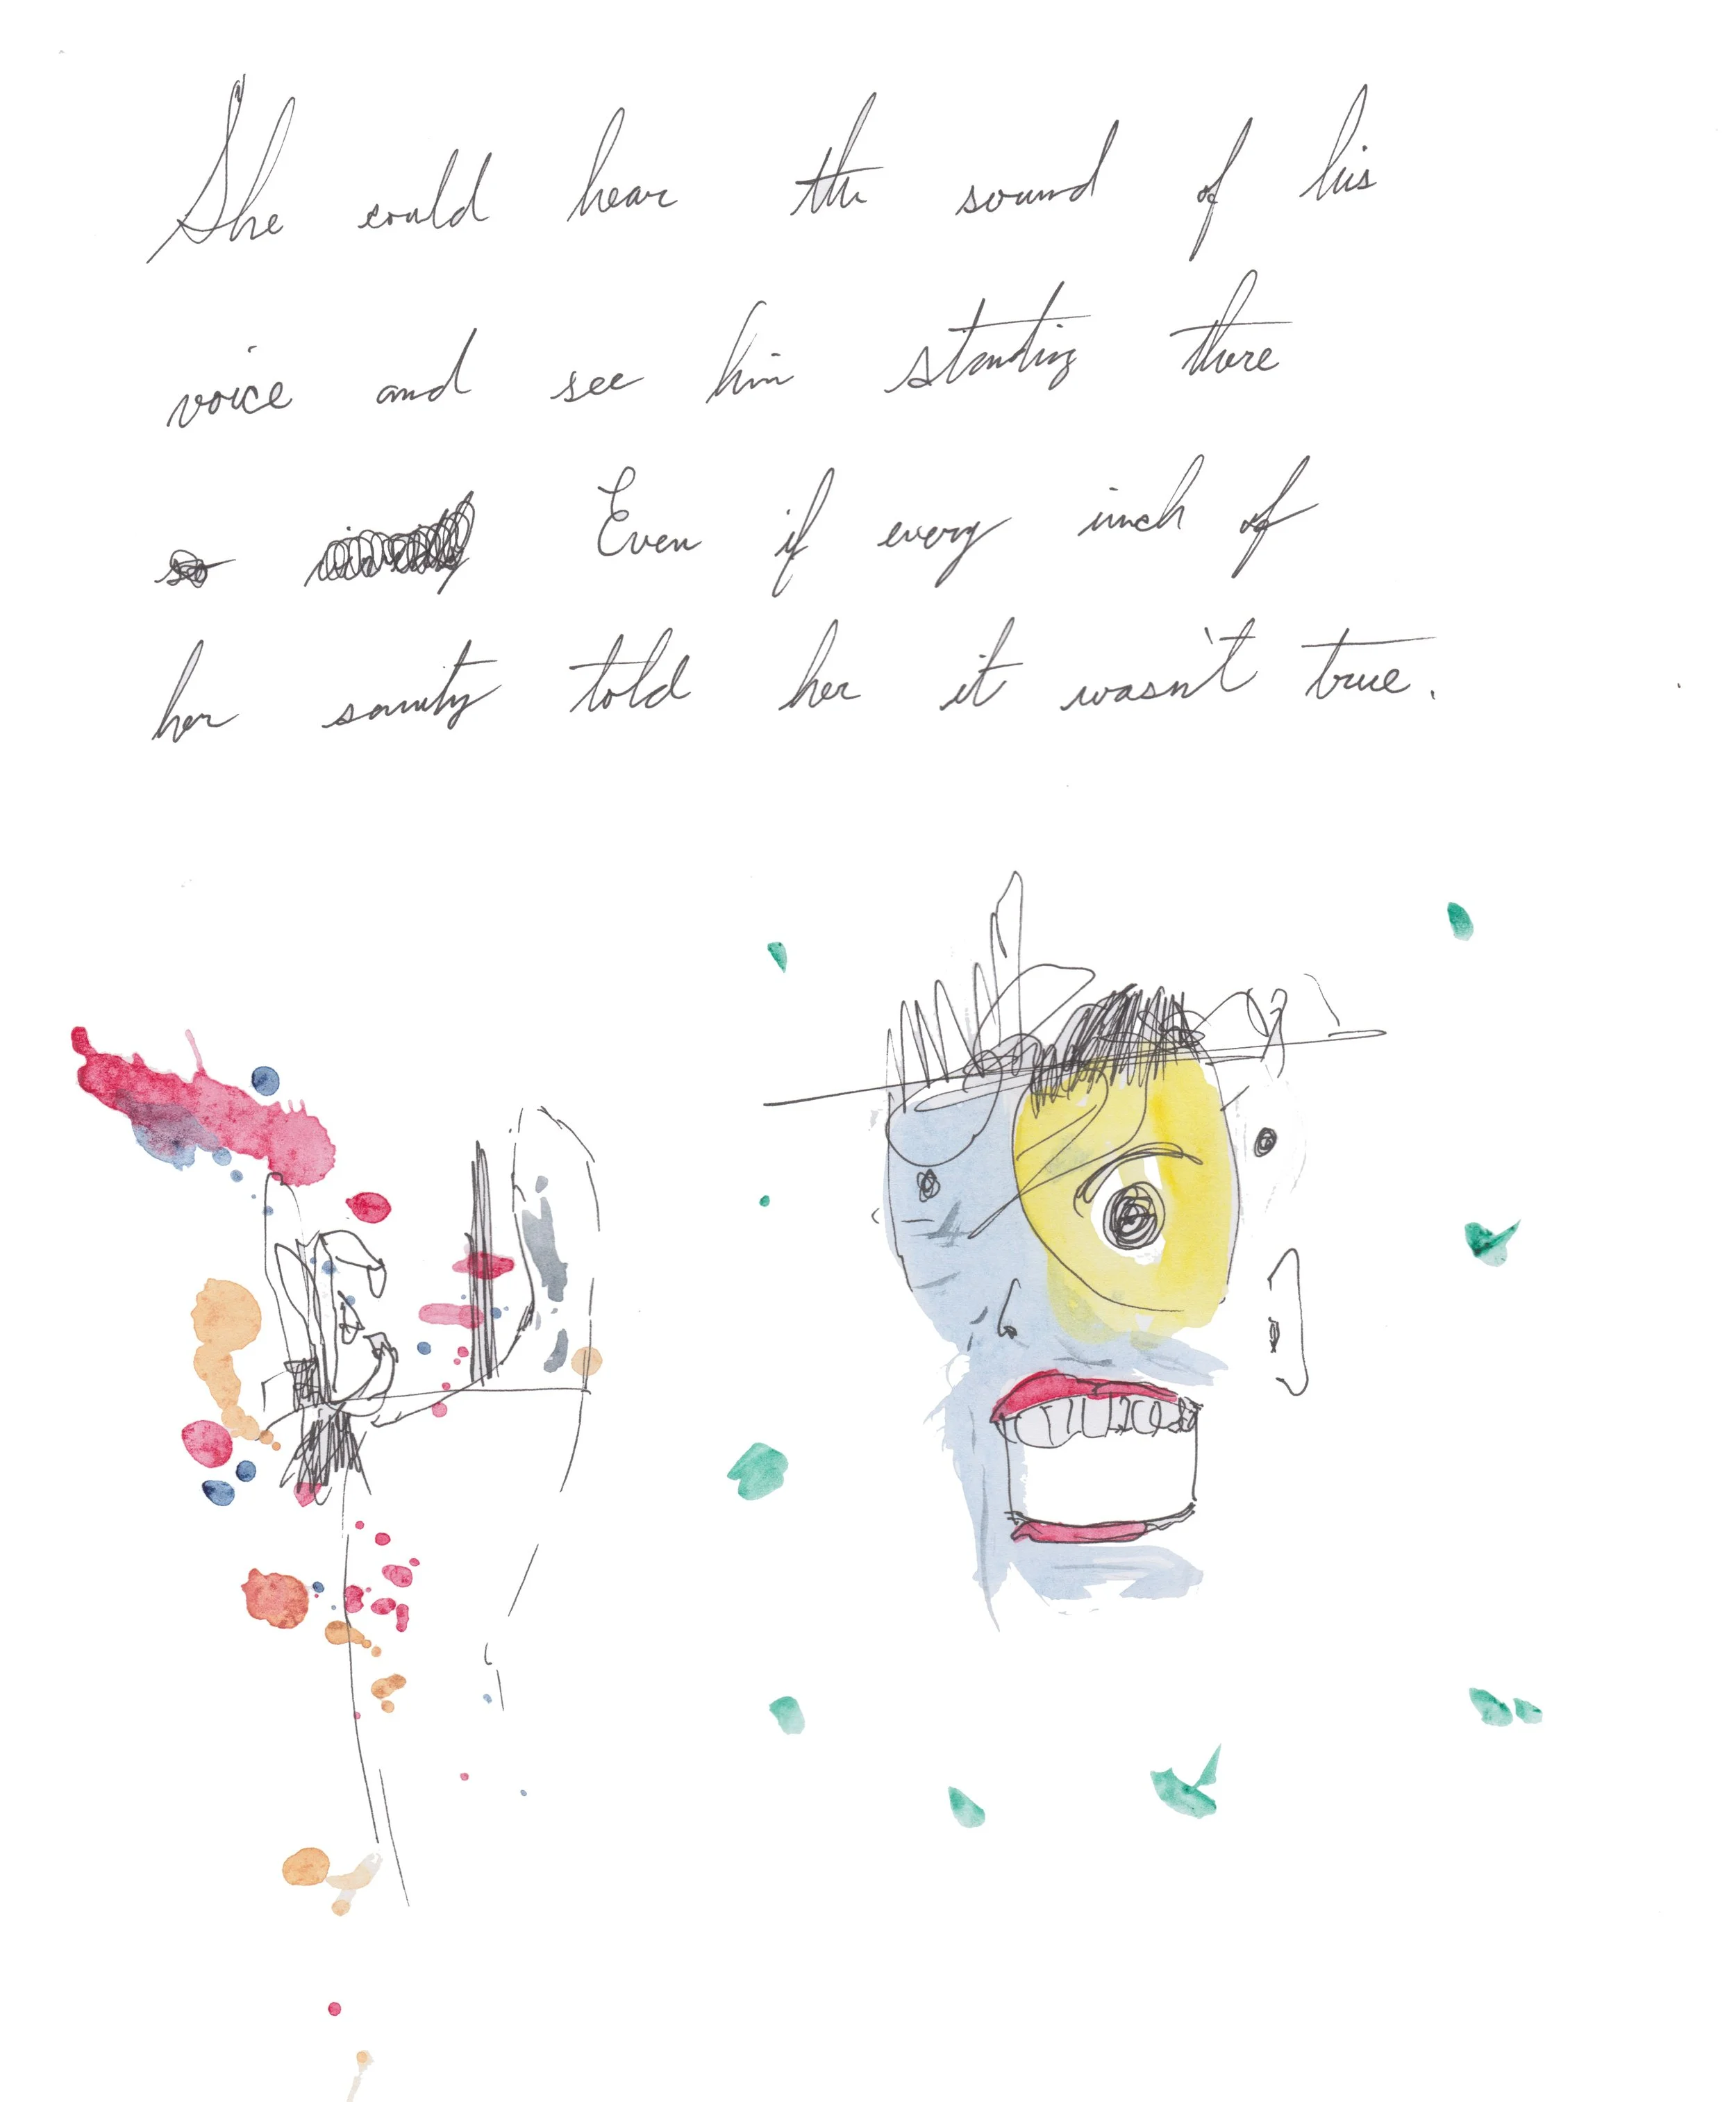 She could hear the sound of his
voice and see him standing there
so Even if every inch of
her sanity told her it wasn't true.